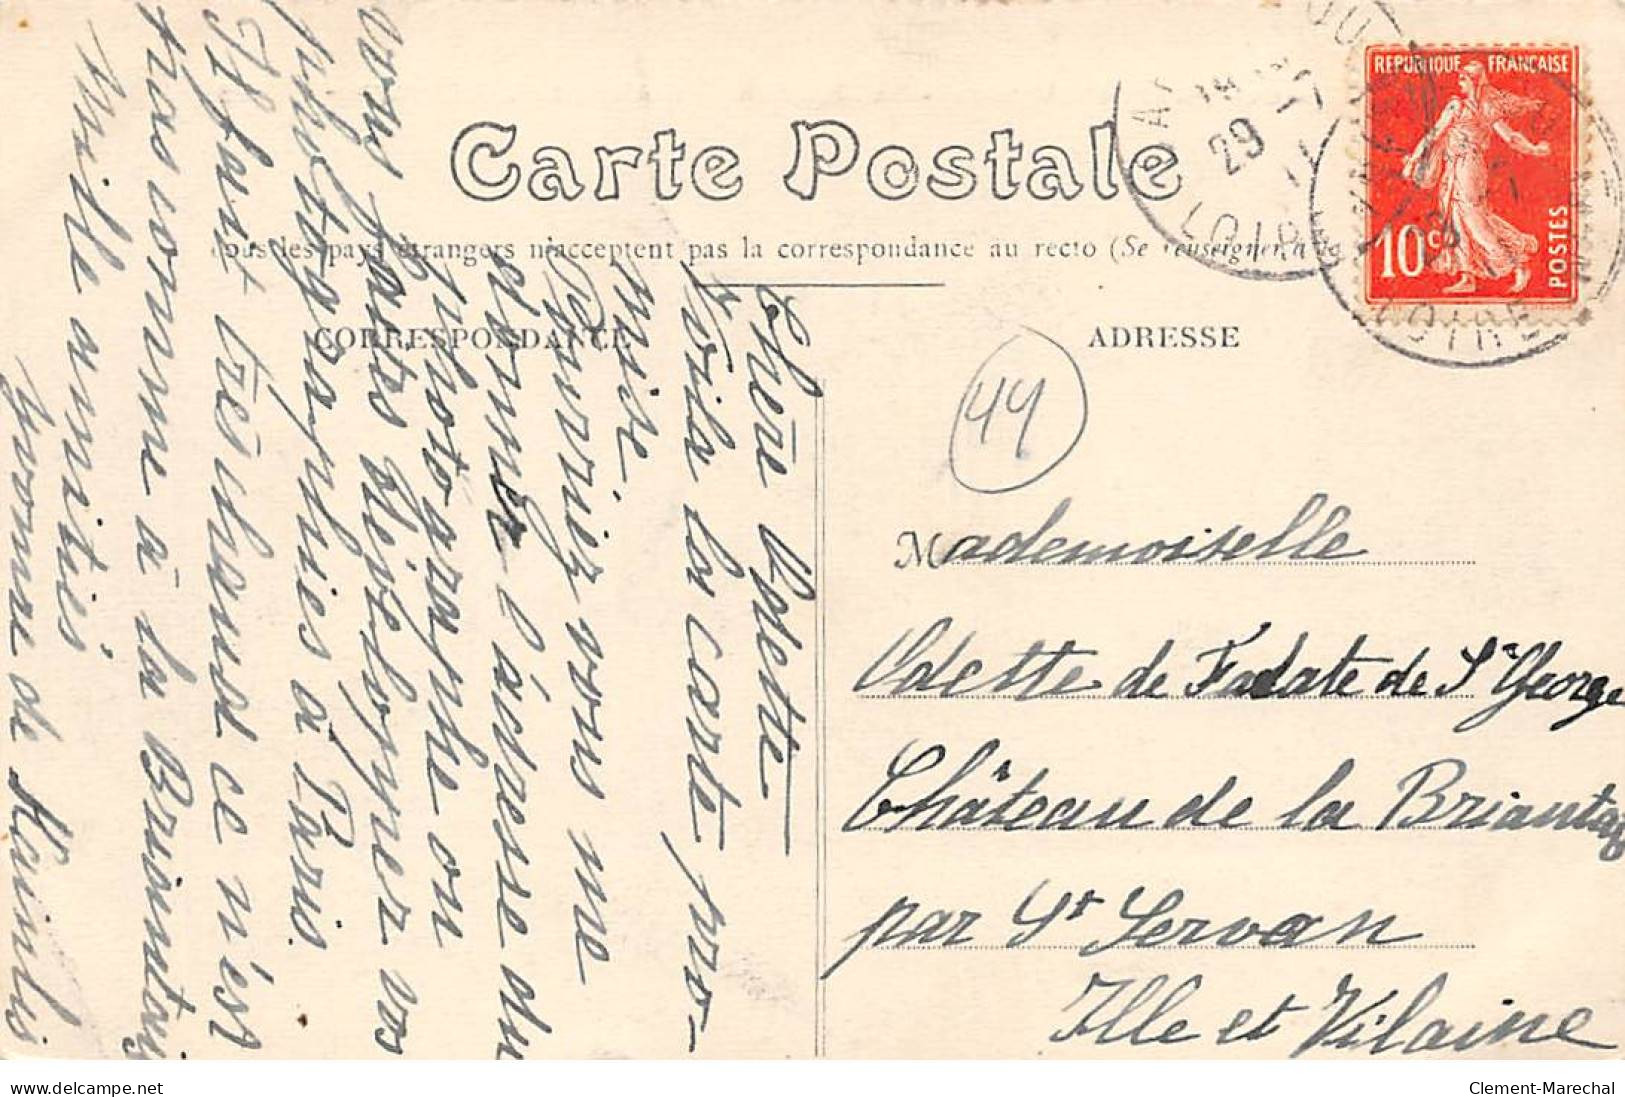 Carte Postale
Tous les pays étrangers n'acceptent pas la correspondance au recto (Se renseigner à la
CORRESPONDANCE
ADRESSE
REPUBLIQUE FRANÇAISE
10 c.
POSTES
29
LOIRE
44
Mademoiselle
Odette de Fadate de St George
Château de la Briantais
par St Servan
Ille et Vilaine
Chère Odette
Voila la carte pro-
mise
Pourriez vous me
donner l'adresse du
photographe ou
vous faites développer vos
photographies à Paris
Il fait très chaud ce n'est
pas comme à la Briantais
Mille amitiés
Yvonne de
www.delcampe.net
Clement-Marechal